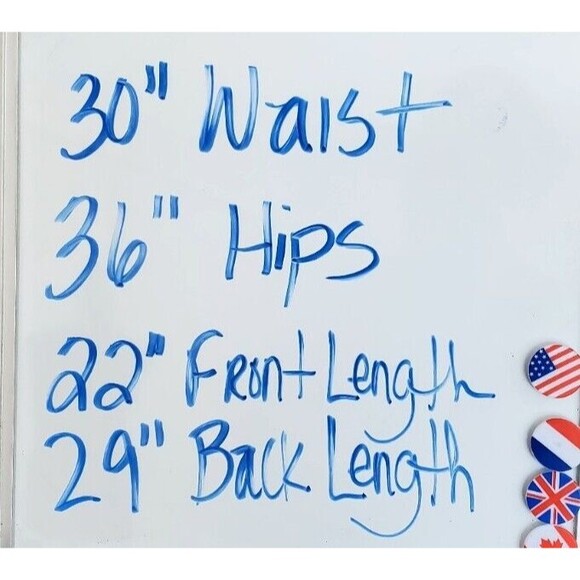 30" Waist
36" Hips
22" Front Length
29" Back Length